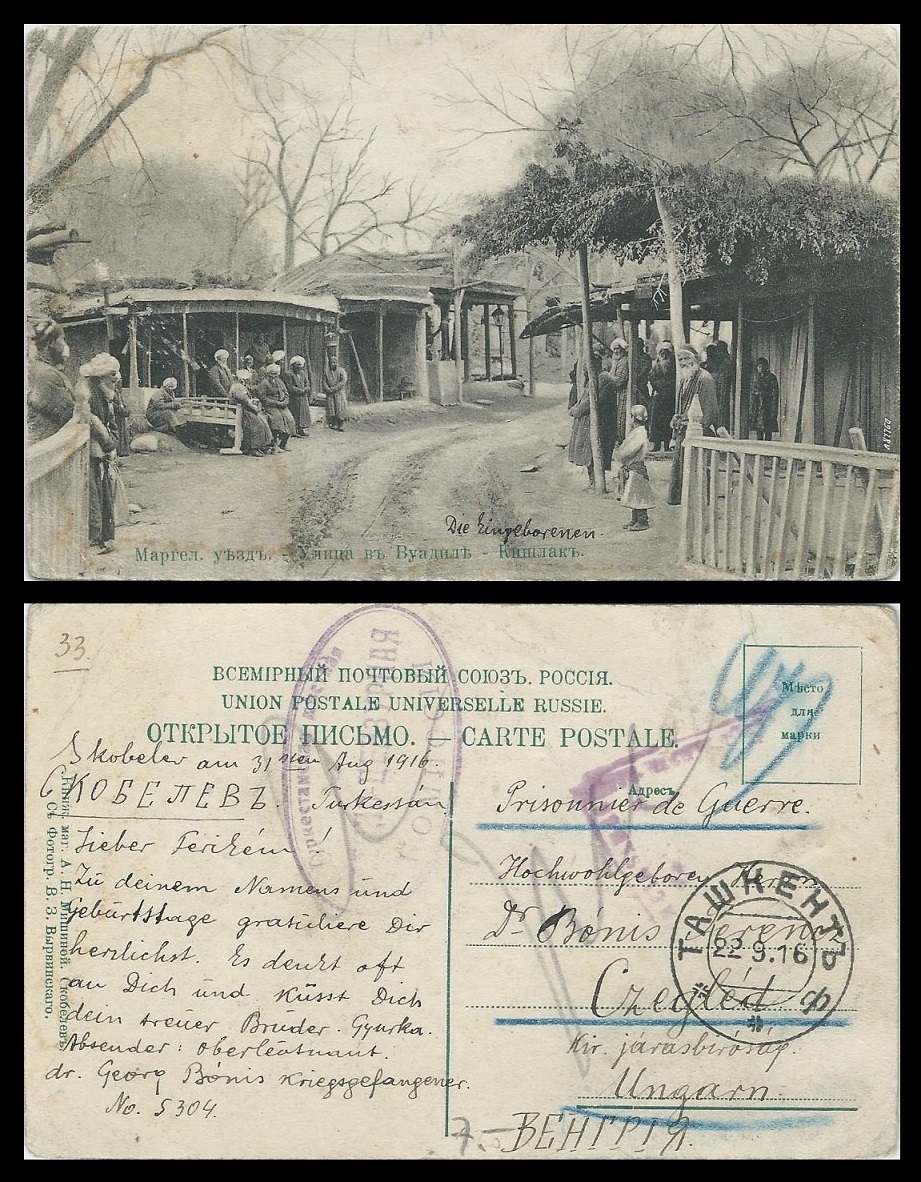 Die Eingeborenen.
Маргел. уѣздъ. - Улица въ Вуадилѣ - Кишлакъ.
33.
ВСЕМІРНЫЙ ПОЧТОВЫЙ СОЮЗЪ. РОССІЯ.
UNION POSTALE UNIVERSELLE RUSSIE.
ОТКРЫТОЕ ПИСЬМО. — CARTE POSTALE.
Мѣсто
для
марки
Адресъ.
Skobelev am 31sten Aug 1916.
СКОБЕЛЕВЪ. Turkestán
Lieber Ferikém!
Zu deinem Namens und
Geburtstage gratuliere Dir
herzlichst. Es denkt oft
an Dich und küsst Dich
dein treuer Bruder. Gyurka.
Absender: oberleutnant.
dr. Georg Bónis kriegsgefangener.
No. 5304.
Книж. маг. А. Н. Мишиной. Скобелевъ
Съ Фотогр. В. З. Вырвинскаго.
Prisonnier de Guerre.
Hochwohlgeboren Herrn
Dr Bónis Ferenc
Czegléd
Kir. járásbiróság.
Ungarn.
ВЕНГРІЯ.
ТАШКЕНТЪ
22 9.16